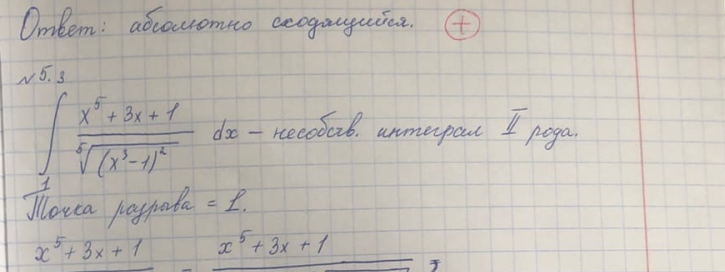 Ответ: абсолютно сходящийся. +
№5.3
∫₁ (x⁵ + 3x + 1) / ⁵√((x³ − 1)²) dx – несобств. интеграл II рода.
Точка разрыва = 1.
x⁵ + 3x + 1 = x⁵ + 3x + 1